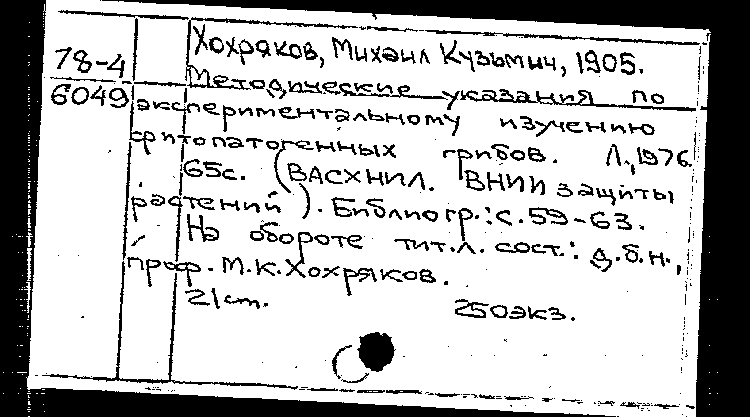 78-4
6049
Хохряков, Михаил Кузьмич, 1905.
Методические указания по
экспериментальному изучению
фитопатогенных грибов. Л., 1976.
65с. (ВАСХНИЛ. ВНИИ защиты
растений). Библиогр.: с. 59-63.
На обороте тит. л. сост.: д.б.н.,
проф. М.К. Хохряков.
21 см. 250экз.